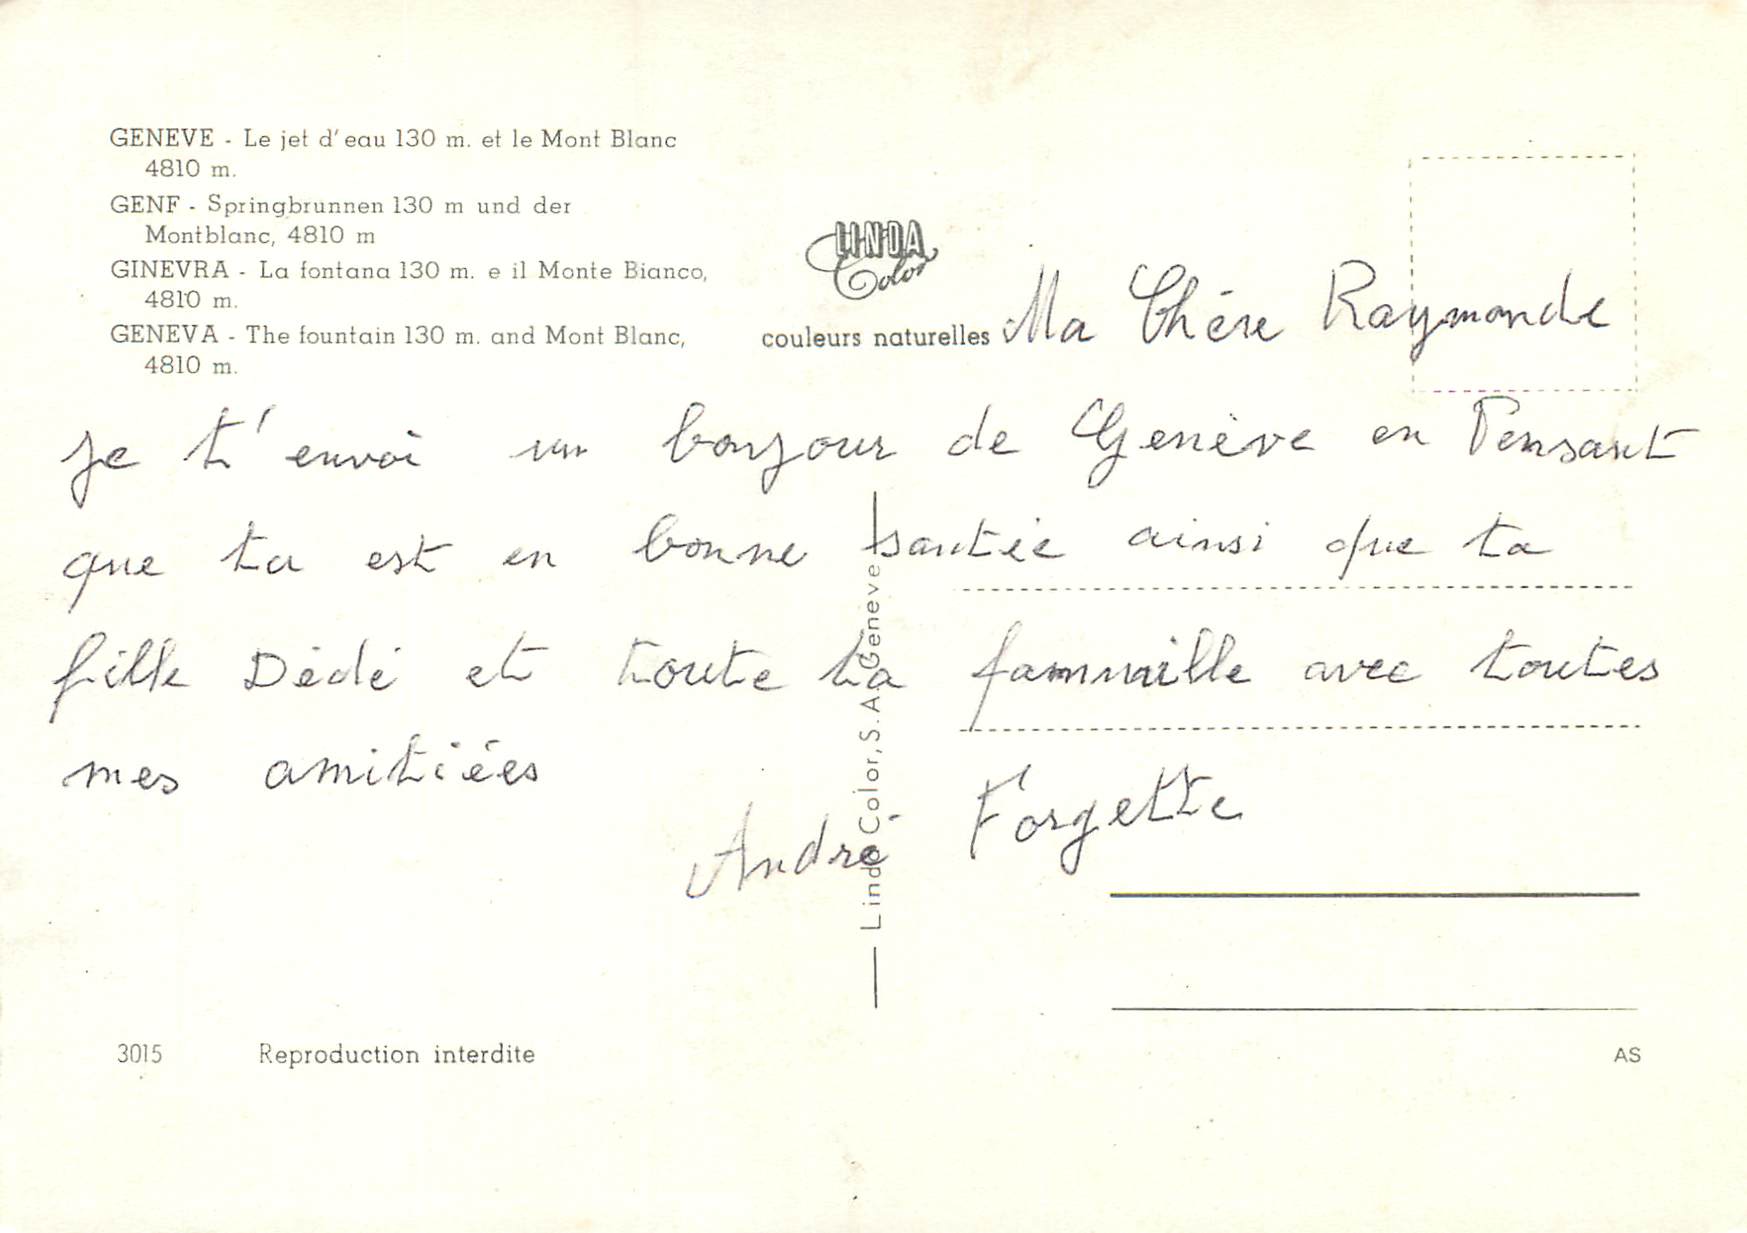 GENEVE - Le jet d'eau 130 m. et le Mont Blanc
4810 m.
GENF - Springbrunnen 130 m und der
Montblanc, 4810 m
GINEVRA - La fontana 130 m. e il Monte Bianco,
4810 m.
GENEVA - The fountain 130 m. and Mont Blanc,
4810 m.
LINDA
Color
couleurs naturelles
Ma Chére Raymonde
je t'envoi un bonjour de Genève en Pensant
que ta est en bonne santée ainsi que ta
fille Dédé et toute ta fammille avec toutes
mes amitiées
André Forgette
Linda Color, S. A Geneve
3015 Reproduction interdite
AS